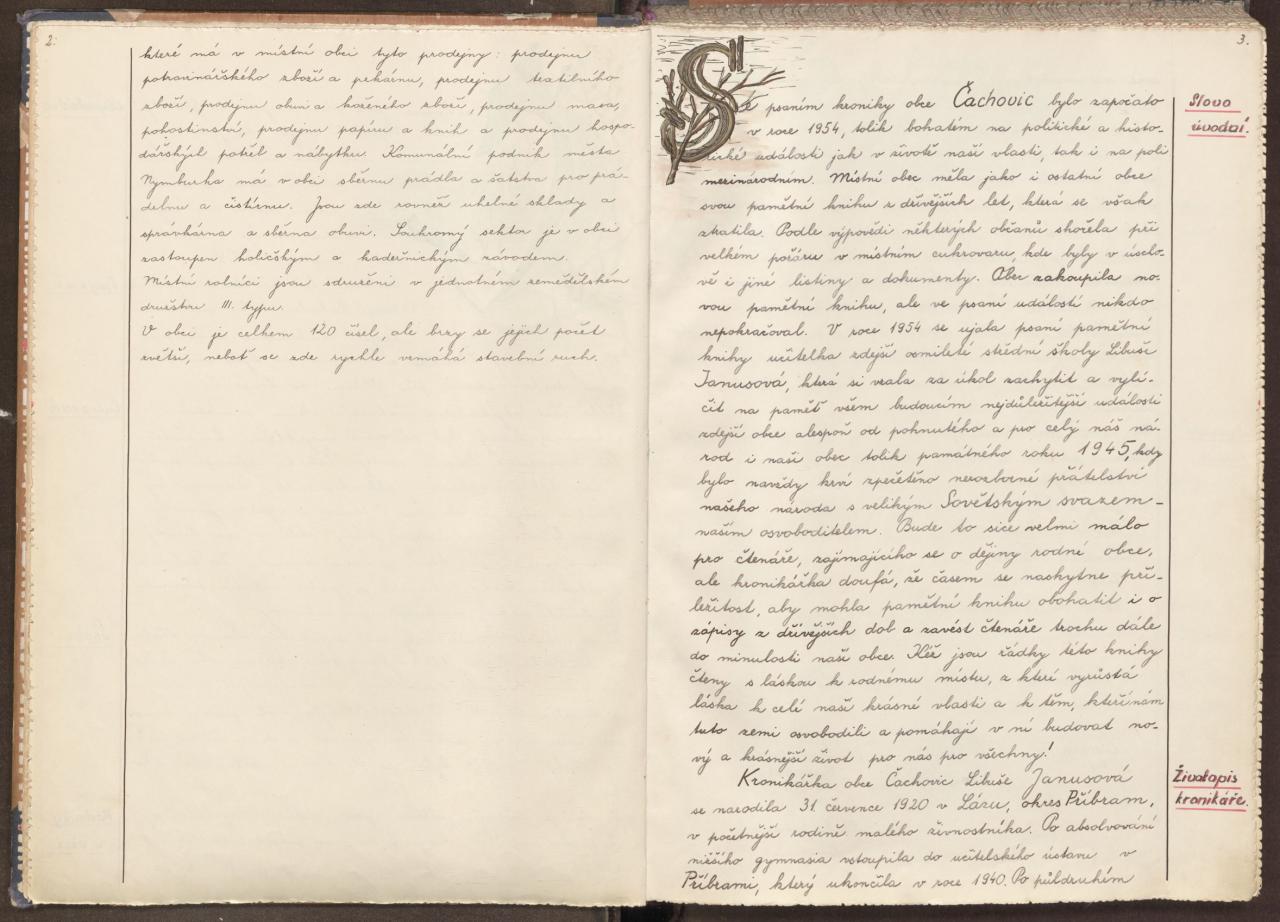 2.
které má v místní obci tyto prodejny: prodejnu
potravinářského zboží a pekárnu, prodejnu textilního
zboží, prodejnu obuvi a koženého zboží, prodejnu masa,
pohostinství, prodejnu papíru a knih a prodejnu hospo-
dářských potřeb a nábytku. Komunální podnik města
Nymburka má v obci sběrnu prádla a šatstva pro prá-
delnu a čistírnu. Jsou zde rovněž uhelné sklady a
správkárna a sběrna obuvi. Soukromý sektor je v obci
zastoupen holičským a kadeřnickým závodem.
Místní rolníci jsou sdruženi v jednotném zemědělském
družstvu III. typu.
V obci je celkem 120 čísel, ale brzy se jejich počet
zvětší, neboť se zde rychle vzmáhá stavební ruch.
3.
Slovo
úvodní.
Se psaním kroniky obce Čachovic bylo započato
v roce 1954, tolik bohatém na politické a histo-
rické události jak v životě naší vlasti, tak i na poli
mezinárodním. Místní obec měla jako i ostatní obce
svou pamětní knihu z dřívějších let, která se však
ztratila. Podle výpovědi některých občanů shořela při
velkém požáru v místním cukrovaru, kde byly v úscho-
vě i jiné listiny a dokumenty. Obec zakoupila no-
vou pamětní knihu, ale ve psaní událostí nikdo
nepokračoval. V roce 1954 se ujala psaní pamětní
knihy učitelka zdejší osmileté střední školy Libuše
Janusová, která si vzala za úkol zachytit a vylí-
čit na paměť všem budoucím nejdůležitější události
zdejší obce alespoň od pohnutého a pro celý náš ná-
rod i naši obec tolik památného roku 1945, kdy
bylo navždy krví zpečetěno nerozborné přátelství
našeho národa s velikým Sovětským svazem -
naším osvoboditelem. Bude to sice velmi málo
pro čtenáře, zajímajícího se o dějiny rodné obce,
ale kronikářka doufá, že časem se naskytne pří-
ležitost, aby mohla pamětní knihu obohatit i o
zápisy z dřívějších dob a zavést čtenáře trochu dále
do minulosti naší obce. Kéž jsou řádky této knihy
čteny s láskou k rodnému místu, z které vyrůstá
láska k celé naší krásné vlasti a k těm, kteří nám
tuto zemi osvobodili a pomáhají v ní budovat no-
vý a krásnější život pro nás pro všechny!
Životopis
kronikáře.
Kronikářka obce Čachovic Libuše Janusová
se narodila 31. července 1920 v Lázu, okres Příbram,
v početnější rodině malého živnostníka. Po absolvování
nižšího gymnasia vstoupila do učitelského ústavu v
Příbrami, který ukončila v roce 1940. Po půldruhém